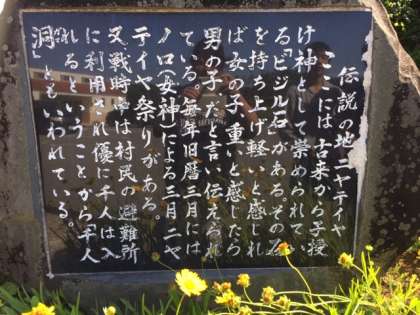 伝説の地ニヤテイヤ
ここには古来から子授
け神として崇められてい
る「ビジル石」がある。その石
を持ち上げ軽いと感じれ
ば女の子、重いと感じたら
男の子だと言い伝えられ
ている。毎年旧暦三月には
ノロ(女神)による三月ニヤ
テイヤ祭りがある。
又、戦時中は村民の避難所
に利用され優に千人は入
れるということから「千人
洞」ともいわれている。